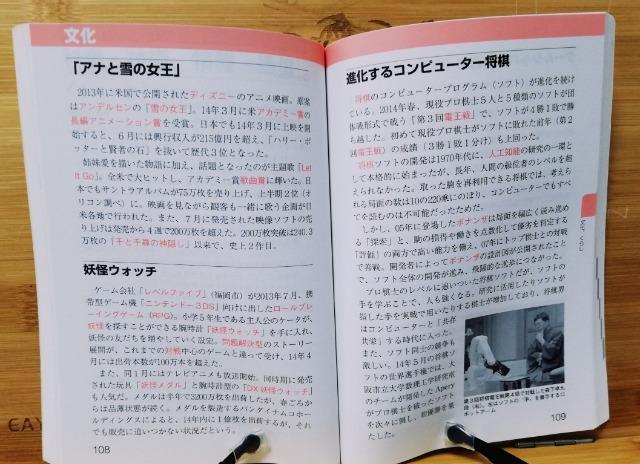 文化
「アナと雪の女王」
2013年に米国で公開されたディズニーのアニメ映画。原案
はアンデルセンの「雪の女王」。14年3月に米アカデミー賞の
長編アニメーション賞を受賞。日本でも14年3月に上映を開
始すると、6月には興行収入が215億円を超え、「ハリー・ポ
ッターと賢者の石」を抜いて歴代3位となった。
姉妹愛を描いた物語に加え、話題となったのが主題歌「Let
It Go」。全米で大ヒットし、アカデミー賞歌曲賞に輝いた。日
本でもサントラアルバムが75万枚を売り上げ、上半期2位（オ
リコン調べ）に。映画を見ながら観客も一緒に歌う企画が日
米各地で行われた。また、7月に発売された映像ソフトの売
り上げは発売から4週で200万枚を超えた。200万枚突破は240.3
万枚の「千と千尋の神隠し」以来で、史上2作目。
妖怪ウォッチ
ゲーム会社「レベルファイブ」（福岡市）が2013年7月、携
帯型ゲーム機「ニンテンドー3DS」向けに出したロールプレ
イングゲーム（RPG）。小学5年生である主人公のケータが、
妖怪を探すことができる腕時計「妖怪ウォッチ」を手に入れ、
妖怪の友だちを増やしていく設定。問題解決型のストーリー
展開が、これまでの対戦中心のゲームと違って受け、14年4
月には出荷本数が100万本を超えた。
また、同1月にはテレビアニメも放送開始。同時期に発売
された玩具「妖怪メダル」と腕時計型の「DX妖怪ウォッチ」
も人気だ。メダルは半年で3200万枚を出荷したが、春ごろから
は品薄状態が続く。メダルを製造するバンダイナムコホー
ルディングスによると、年内に1億枚を出荷するが、それ
でも販売に追いつかない状況だという。
108
進化するコンピューター将棋
将棋のコンピュータープログラム（ソフト）が進化を続け
ている。2014年春、現役プロ棋士5人と5種類のソフトが団
体戦形式で戦う「第3回電王戦」で、ソフトが4勝1敗で勝
ち越した。初めて現役プロ棋士がソフトに敗れた前年（第2
回電王戦）の成績（3勝1敗1分け）も上回った。
将棋ソフトの開発は1970年代に、人工知能の研究の一環と
して本格的に始まったが、長年、人間の最低者のレベルを超
えられなかった。取った駒を再利用できる将棋では、考えら
れる局面の数は10の220乗にのぼり、コンピューターでもすべ
てを読むのは不可能だったためだ。
しかし、05年に登場したボナンザは局面を幅広く読み進め
る「探索」と、駒の損得や働きを点数化して優劣を判定する
「評価」の両方で高い能力を備え、07年にトップ棋士との対戦
で善戦。開発者によってボナンザの設計図が公開されたこと
で、ソフト全体の開発が進み、飛躍的な進歩につながった。
プロ棋士のレベルに追いついた将棋ソフトだが、ソフトの
手を学ぶことで、人も強くなる。研究に活用したりソフトが
指した手を実戦で用いたりする棋士が増加しており、将棋界
はコンピューターと「共存
共栄」する時代に入った。
また、ソフト同士の競争も
激しい。14年5月の将棋ソ
フトの世界選手権では、大
阪市立大学数理工学研究班
のチームが開発したApery
がプロ棋士を破ったソフト
を次々に倒し、初優勝を果
たした。
109